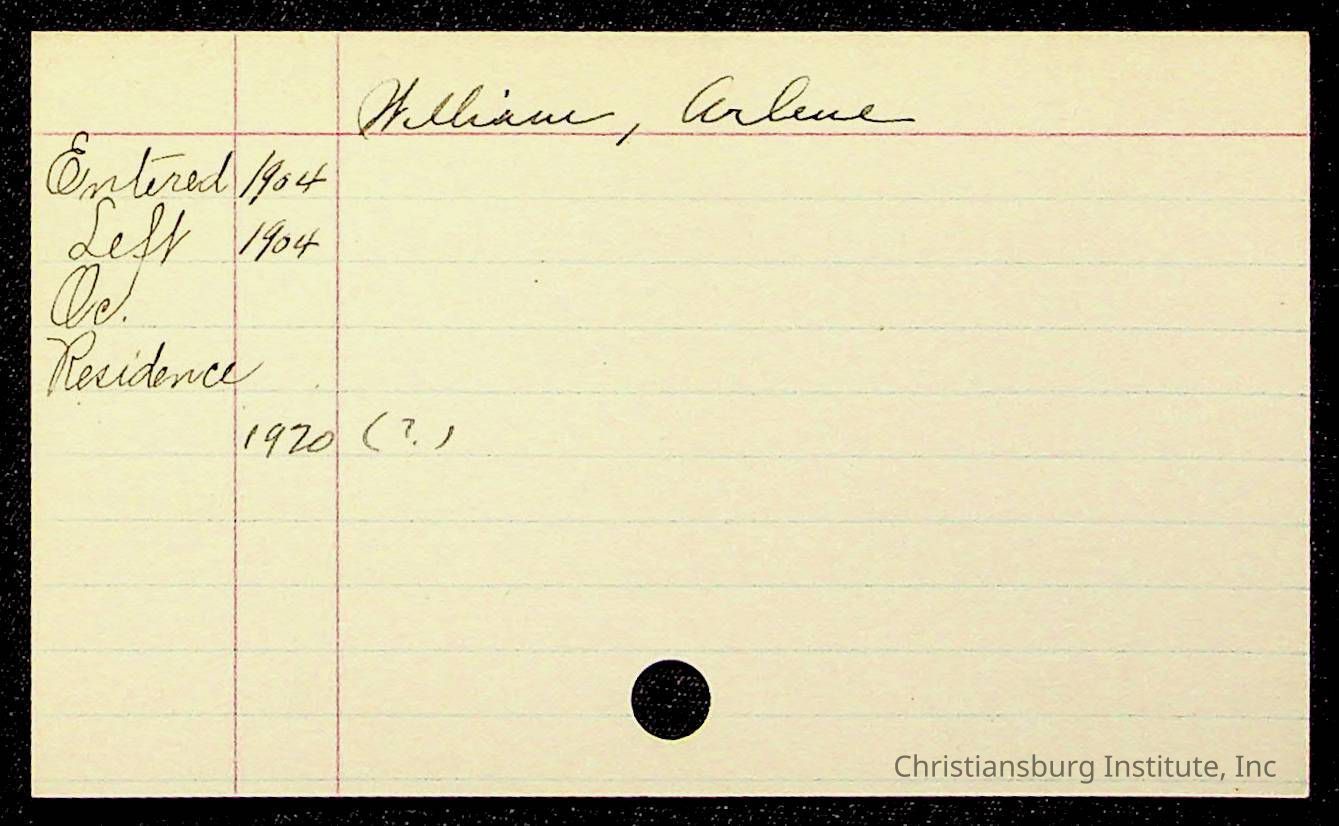 William, Arlene
Entered 1904
Left 1904
Oc.
Residence
1920 (?.)
Christiansburg Institute, Inc